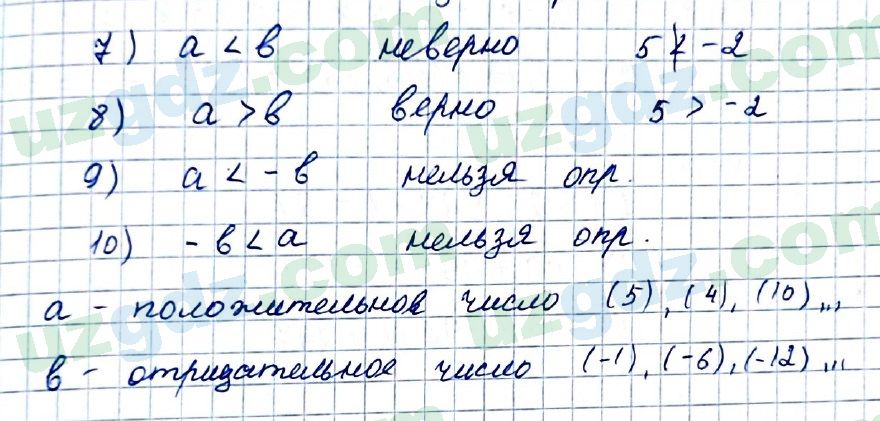 7) a < в неверно 5 ≮ -2
8) a > в верно 5 > -2
9) a < - в нельзя опр.
10) - в < a нельзя опр.
a - положительное число (5), (4), (10),...
в - отрицательное число (-1), (-6), (-12)...
uzgdz.com